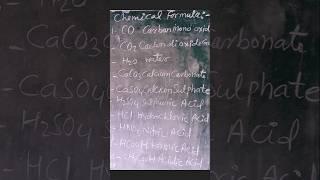 Chemical Formula:-
1. CO Carbon mono oxid
- CO2 Carbon dioxide
- H2O water
- CaCO3 Calcium Carbonate
- CaSO4 Calcium Sulphate
H2SO4 Sulphuric Acid
HCl Hydrochloric Acid
HNO3 Nitric Acid
HCOOH Formic Acid
Acid
CaCO3
Carbonate
CaSO4
Sulphate
H2SO4
Acid
HCl
Acid